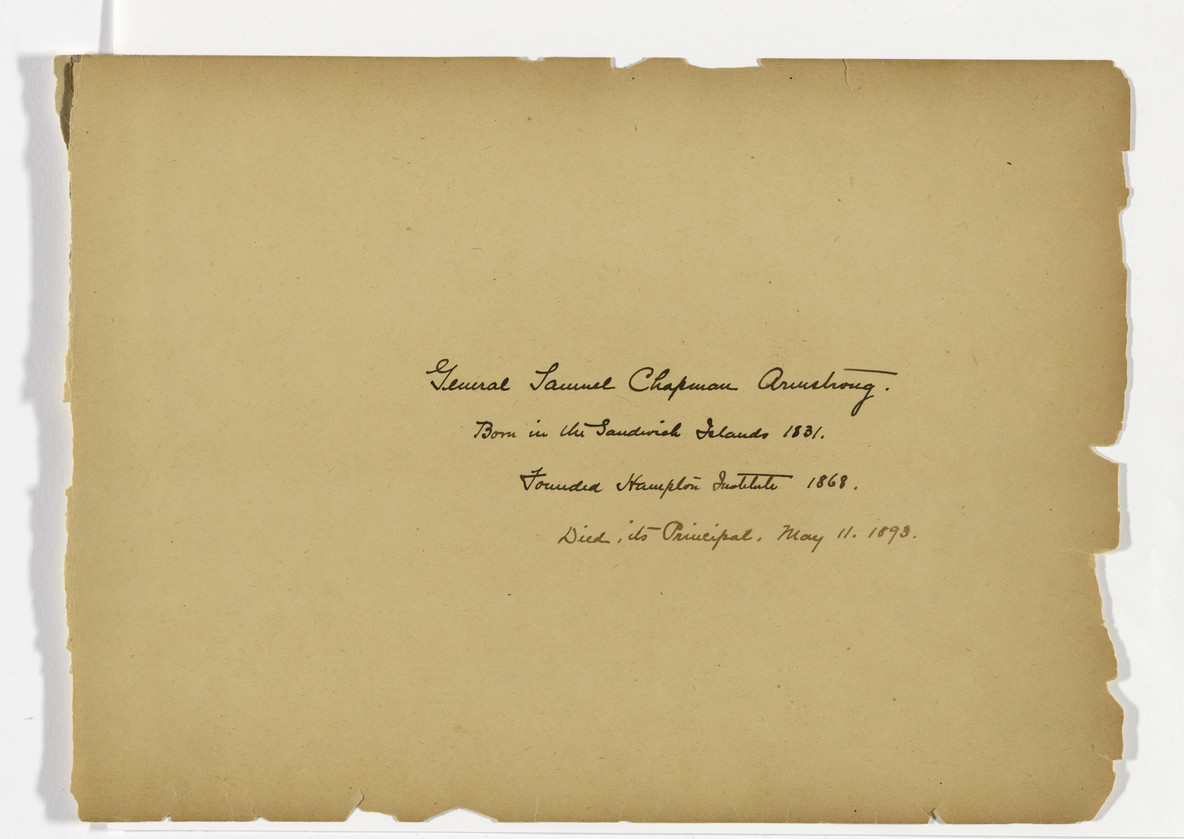 General Samuel Chapman Armstrong.
Born in the Sandwich Islands 1831.
Founded Hampton Institute 1868.
Died, its Principal, May 11. 1893.